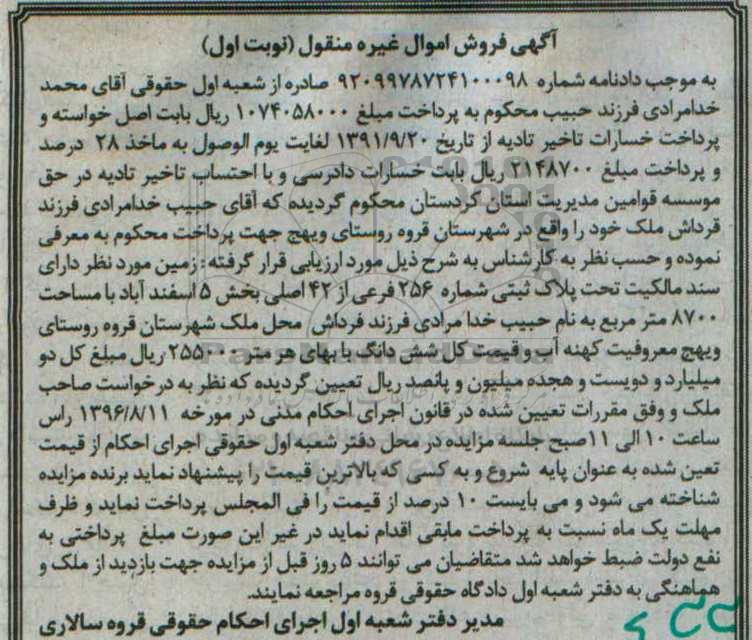 آگهی فروش اموال غیره منقول (نوبت اول)
به موجب دادنامه شماره ۹۲۰۹۹۷۸۷۲۴۱۰۰۰۹۸ صادره از شعبه اول حقوقی آقای محمد
خدامرادی فرزند حبیب محکوم به پرداخت مبلغ ۱۰۷۴۰۵۸۰۰۰ ریال بابت اصل خواسته و
پرداخت خسارات تاخیر تادیه از تاریخ ۱۳۹۱/۹/۲۰ لغایت یوم الوصول به ماخذ ۲۸ درصد
و پرداخت مبلغ ۲۱۴۸۷۰۰ ریال بابت خسارات دادرسی و با احتساب تاخیر تادیه در حق
موسسه قوامین مدیریت استان کردستان محکوم گردیده که آقای حبیب خدامرادی فرزند
قرداش ملک خود را واقع در شهرستان قروه روستای ویهج جهت پرداخت محکوم به معرفی
نموده و حسب نظر به کارشناس به شرح ذیل مورد ارزیابی قرار گرفته : زمین مورد نظر دارای
سند مالکیت تحت پلاک ثبتی شماره ۲۵۶ فرعی از ۴۲ اصلی بخش ۵ اسفند آباد با مساحت
۸۷۰۰ متر مربع به نام حبیب خدا مرادی فرزند قرداش/ محل ملک شهرستان قروه روستای
ویهج معروفیت کهنه آب و قیمت کل شش دانگ با بهای هر متر ۲۵۵۰۰۰ ریال مبلغ کل دو
میلیارد و دویست و هجده میلیون و پانصد ریال تعیین گردیده که نظر به درخواست صاحب
ملک و وفق مقررات تعیین شده در قانون اجرای احکام مدنی در مورخه ۱۳۹۶/۸/۱۱ راس
ساعت ۱۰ الی ۱۱ صبح جلسه مزایده در محل دفتر شعبه اول حقوقی اجرای احکام از قیمت
تعین شده به عنوان پایه شروع و به کسی که بالاترین قیمت را پیشنهاد نماید برنده مزایده
شناخته می شود و می بایست ۱۰ درصد از قیمت را فی المجلس پرداخت نماید و ظرف
مهلت یک ماه نسبت به پرداخت مابقی اقدام نماید در غیر این صورت مبلغ پرداختی به
نفع دولت ضبط خواهد شد متقاضیان می توانند ۵ روز قبل از مزایده جهت بازدید از ملک و
هماهنگی به دفتر شعبه اول دادگاه حقوقی قروه مراجعه نمایند.
مدیر دفتر شعبه اول اجرای احکام حقوقی قروه سالاری